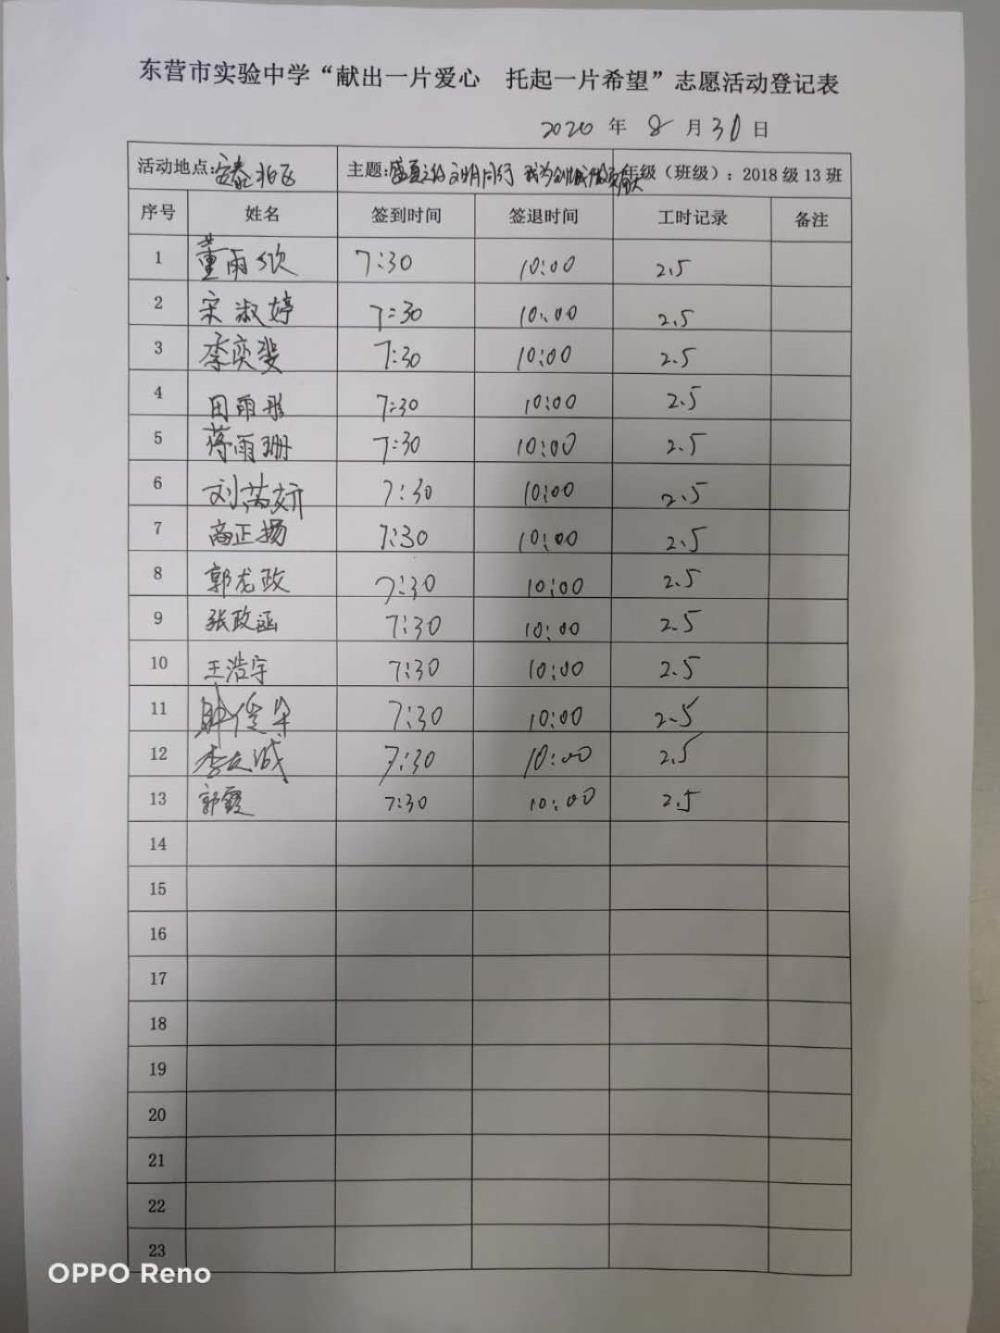 东营市实验中学“献出一片爱心 托起一片希望”志愿活动登记表
2020 年 8 月 30 日
活动地点: 安泰北区 主题: 盛夏之约 文明同行 我为创城做贡献 年级（班级）: 2018 级 13 班
序号 姓名 签到时间 签退时间 工时记录 备注
1 董雨欣 7:30 10:00 2.5
2 宋淑婷 7:30 10:00 2.5
3 李奕斐 7:30 10:00 2.5
4 田雨彤 7:30 10:00 2.5
5 蒋雨珊 7:30 10:00 2.5
6 刘芮妍 7:30 10:00 2.5
7 高正扬 7:30 10:00 2.5
8 郭龙政 7:30 10:00 2.5
9 张政函 7:30 10:00 2.5
10 王浩宇 7:30 10:00 2.5
11 7:30 10:00 2.5
12 7:30 10:00 2.5
13 郭霞 7:30 10:00 2.5
14
15
16
17
18
19
20
21
22
23
OPPO Reno